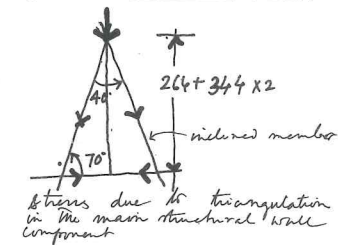 40°
264+344 x2
inclined member
70°
stress due to triangulation
in the main structural wall
component